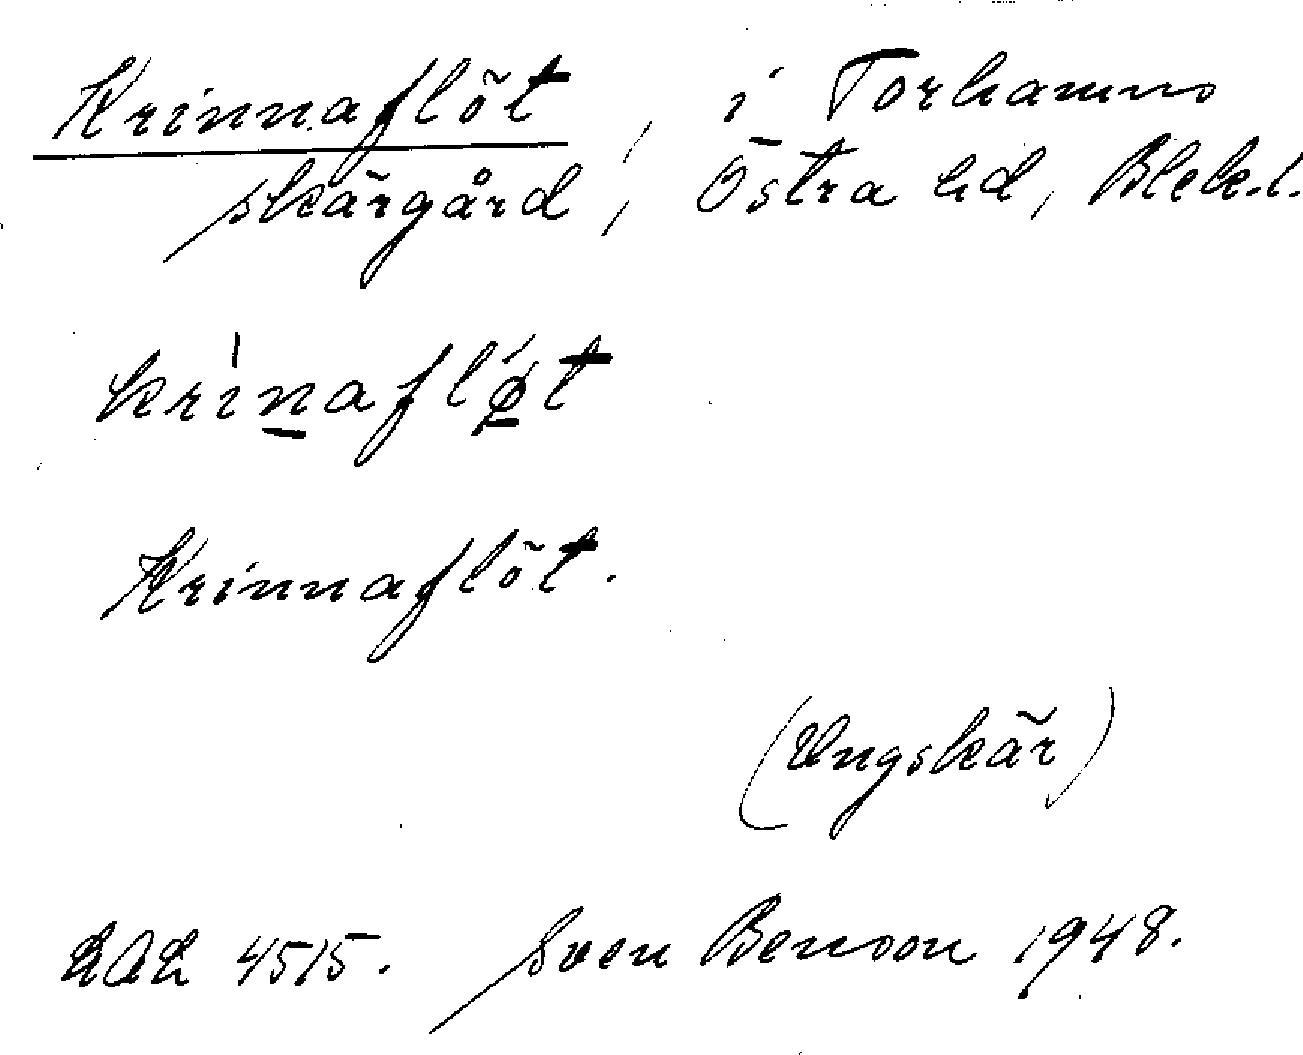 Krinnaflöt, i Torhamns
skärgård, Östra hd, Blek.l.
krinafløt
Krinnaflöt.
(Ungskär)
LAL 4515. Sven Benson 1948.